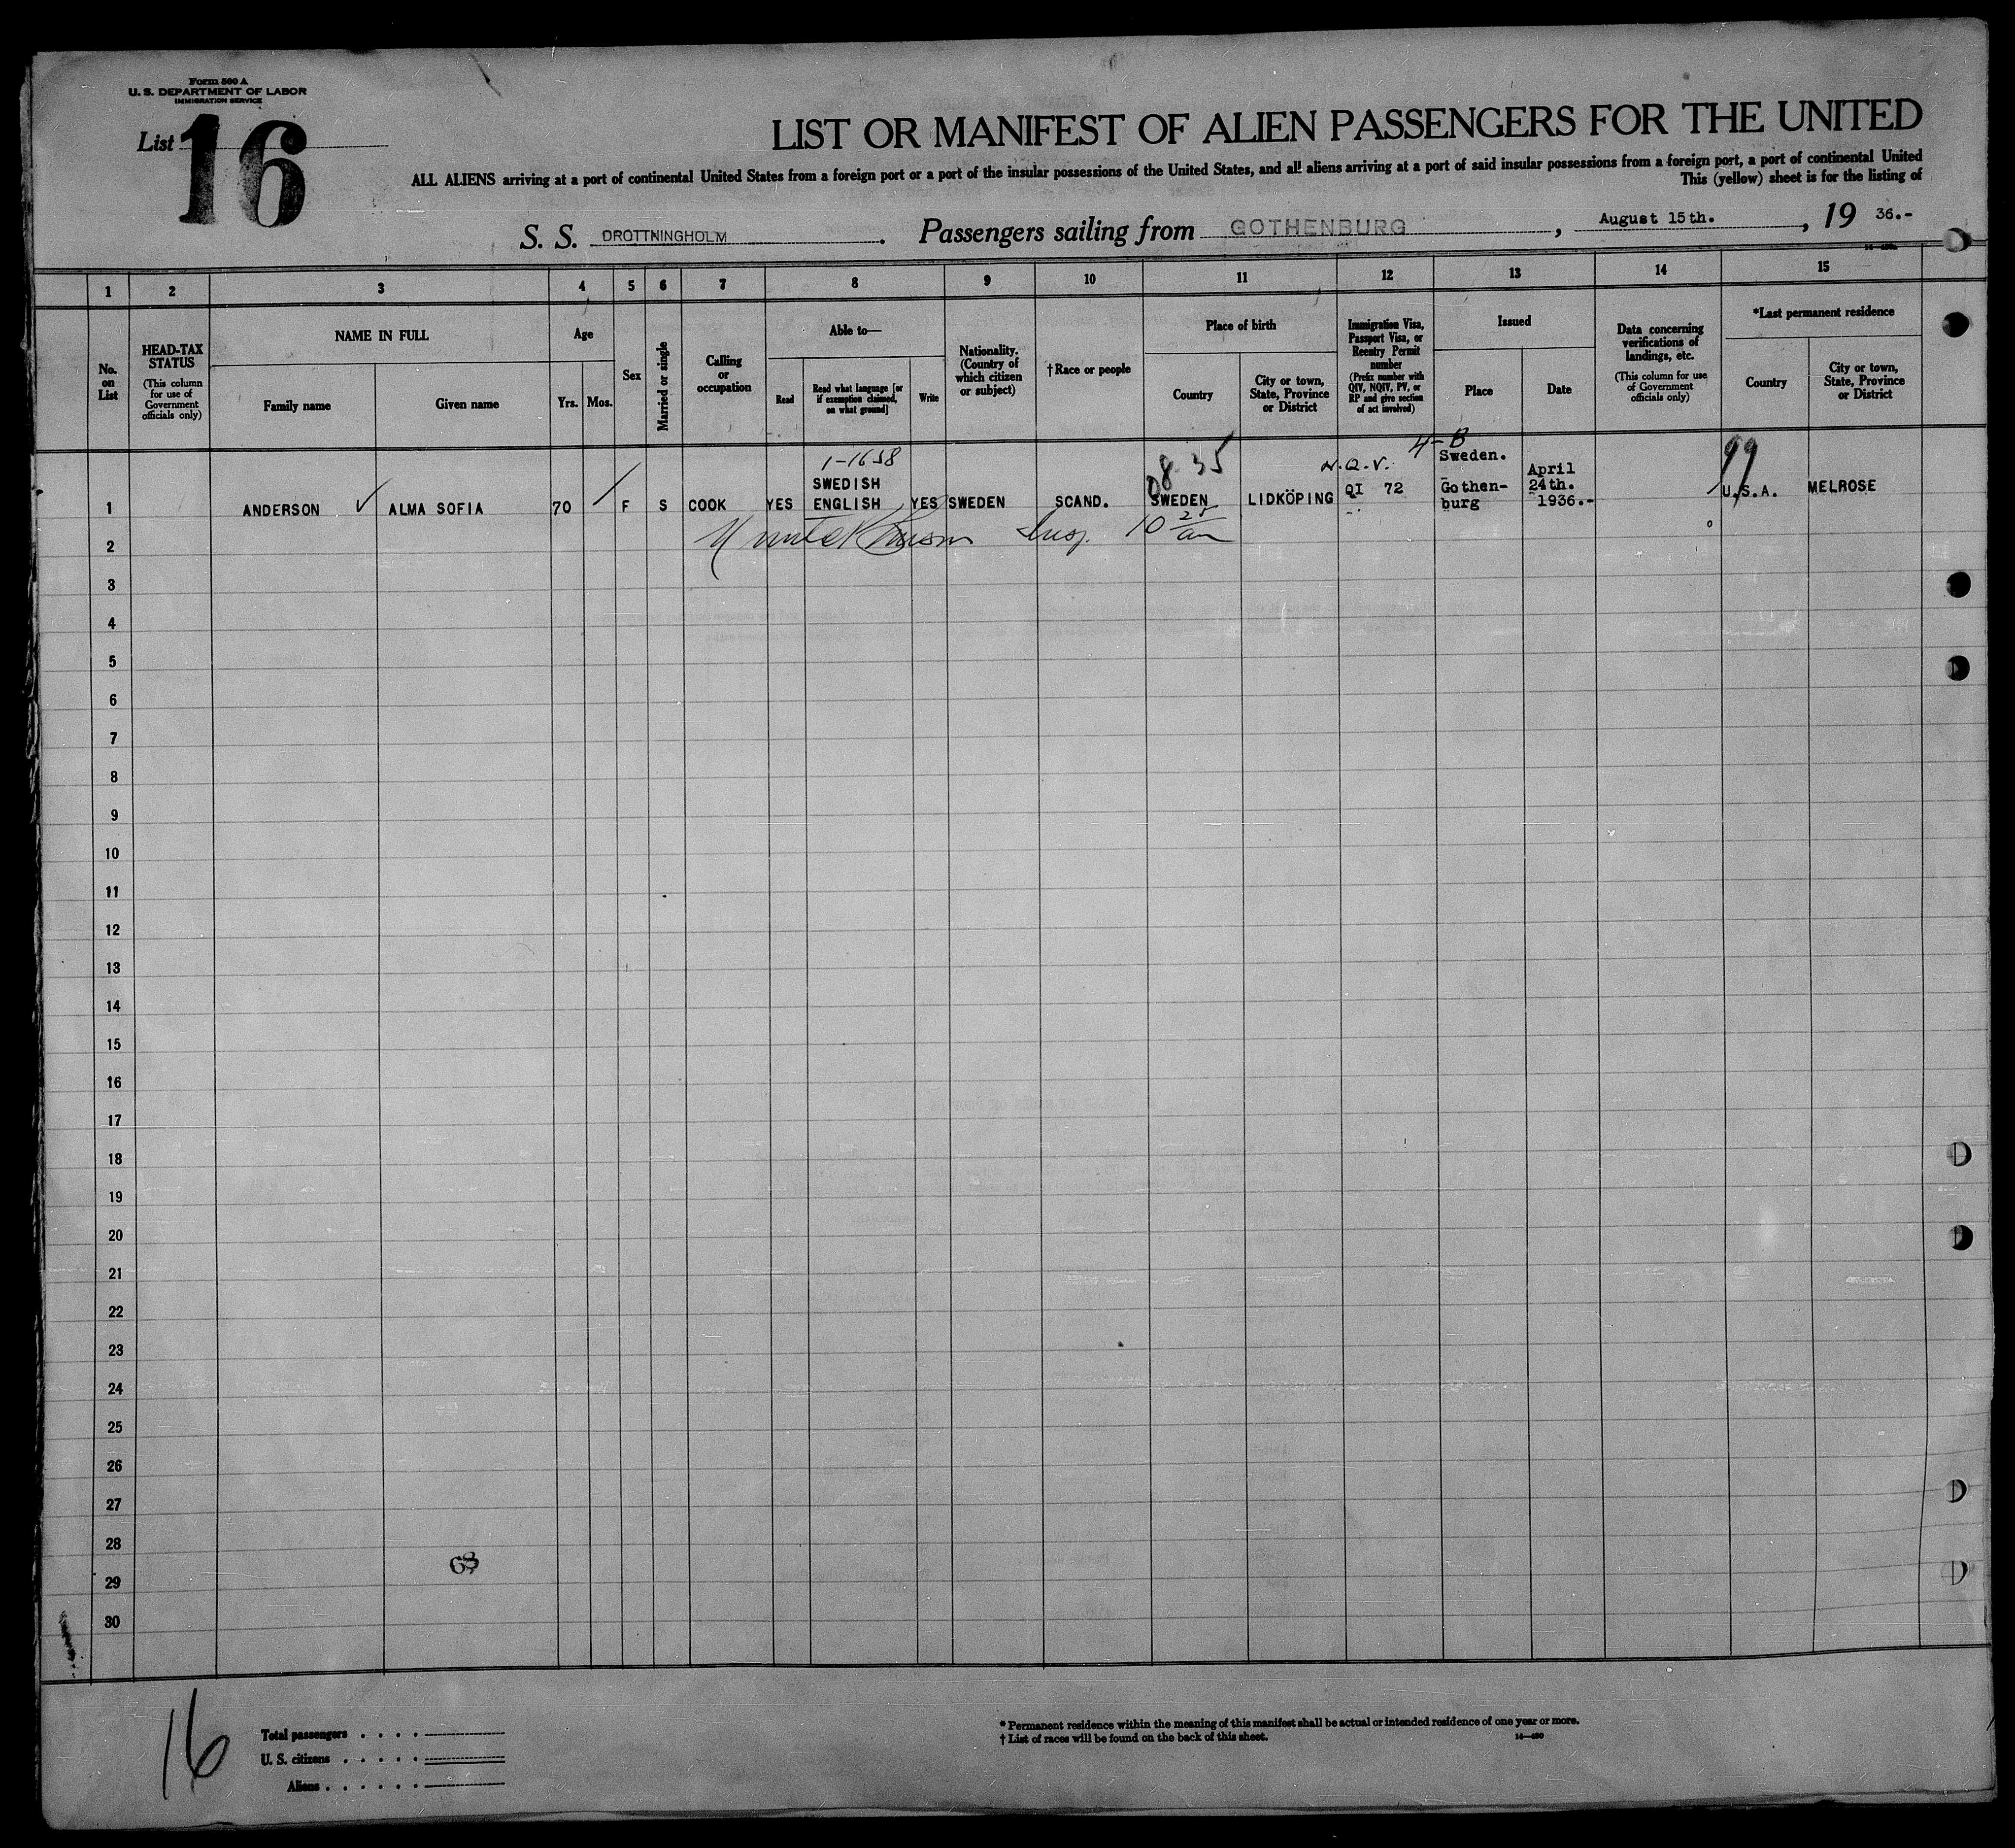 Form 500 A
U. S. DEPARTMENT OF LABOR
IMMIGRATION SERVICE
List 16
LIST OR MANIFEST OF ALIEN PASSENGERS FOR THE UNITED
ALL ALIENS arriving at a port of continental United States from a foreign port or a port of the insular possessions of the United States, and all aliens arriving at a port of said insular possessions from a foreign port, a port of continental United
This (yellow) sheet is for the listing of
S. S. DROTTNINGHOLM. Passengers sailing from GOTHENBURG, August 15th., 19 36.-
1 2 3 4 5 6 7 8 9 10 11 12 13 14 15
No. on List
HEAD-TAX STATUS
(This column for use of Government officials only)
NAME IN FULL
Family name
Given name
Age
Yrs.
Mos.
Sex
Married or single
Calling or occupation
Able to—
Read
Read what language [or if exemption claimed, on what ground]
Write
Nationality. (Country of which citizen or subject)
†Race or people
Place of birth
Country
City or town, State, Province or District
Immigration Visa, Passport Visa, or Reentry Permit number
(Prefix number with QIV, NQIV, PV, or RP and give section of act involved)
Issued
Place
Date
Data concerning verifications of landings, etc.
(This column for use of Government officials only)
*Last permanent residence
Country
City or town, State, Province or District
1-1658
08 35
N.Q.V.
4-B
99
1 ANDERSON ✓ ALMA SOFIA 70 F S COOK YES SWEDISH ENGLISH YES SWEDEN SCAND. SWEDEN LIDKÖPING QI 72 Sweden. Gothen-burg April 24th. 1936.- U.S.A. MELROSE
Insp. 10 25 am
2
3
4
5
6
7
8
9
10
11
12
13
14
15
16
17
18
19
20
21
22
23
24
25
26
27
28
29
30
16
Total passengers . . . .
U. S. citizens . . . . .
Aliens . . . . . .
* Permanent residence within the meaning of this manifest shall be actual or intended residence of one year or more.
† List of races will be found on the back of this sheet.